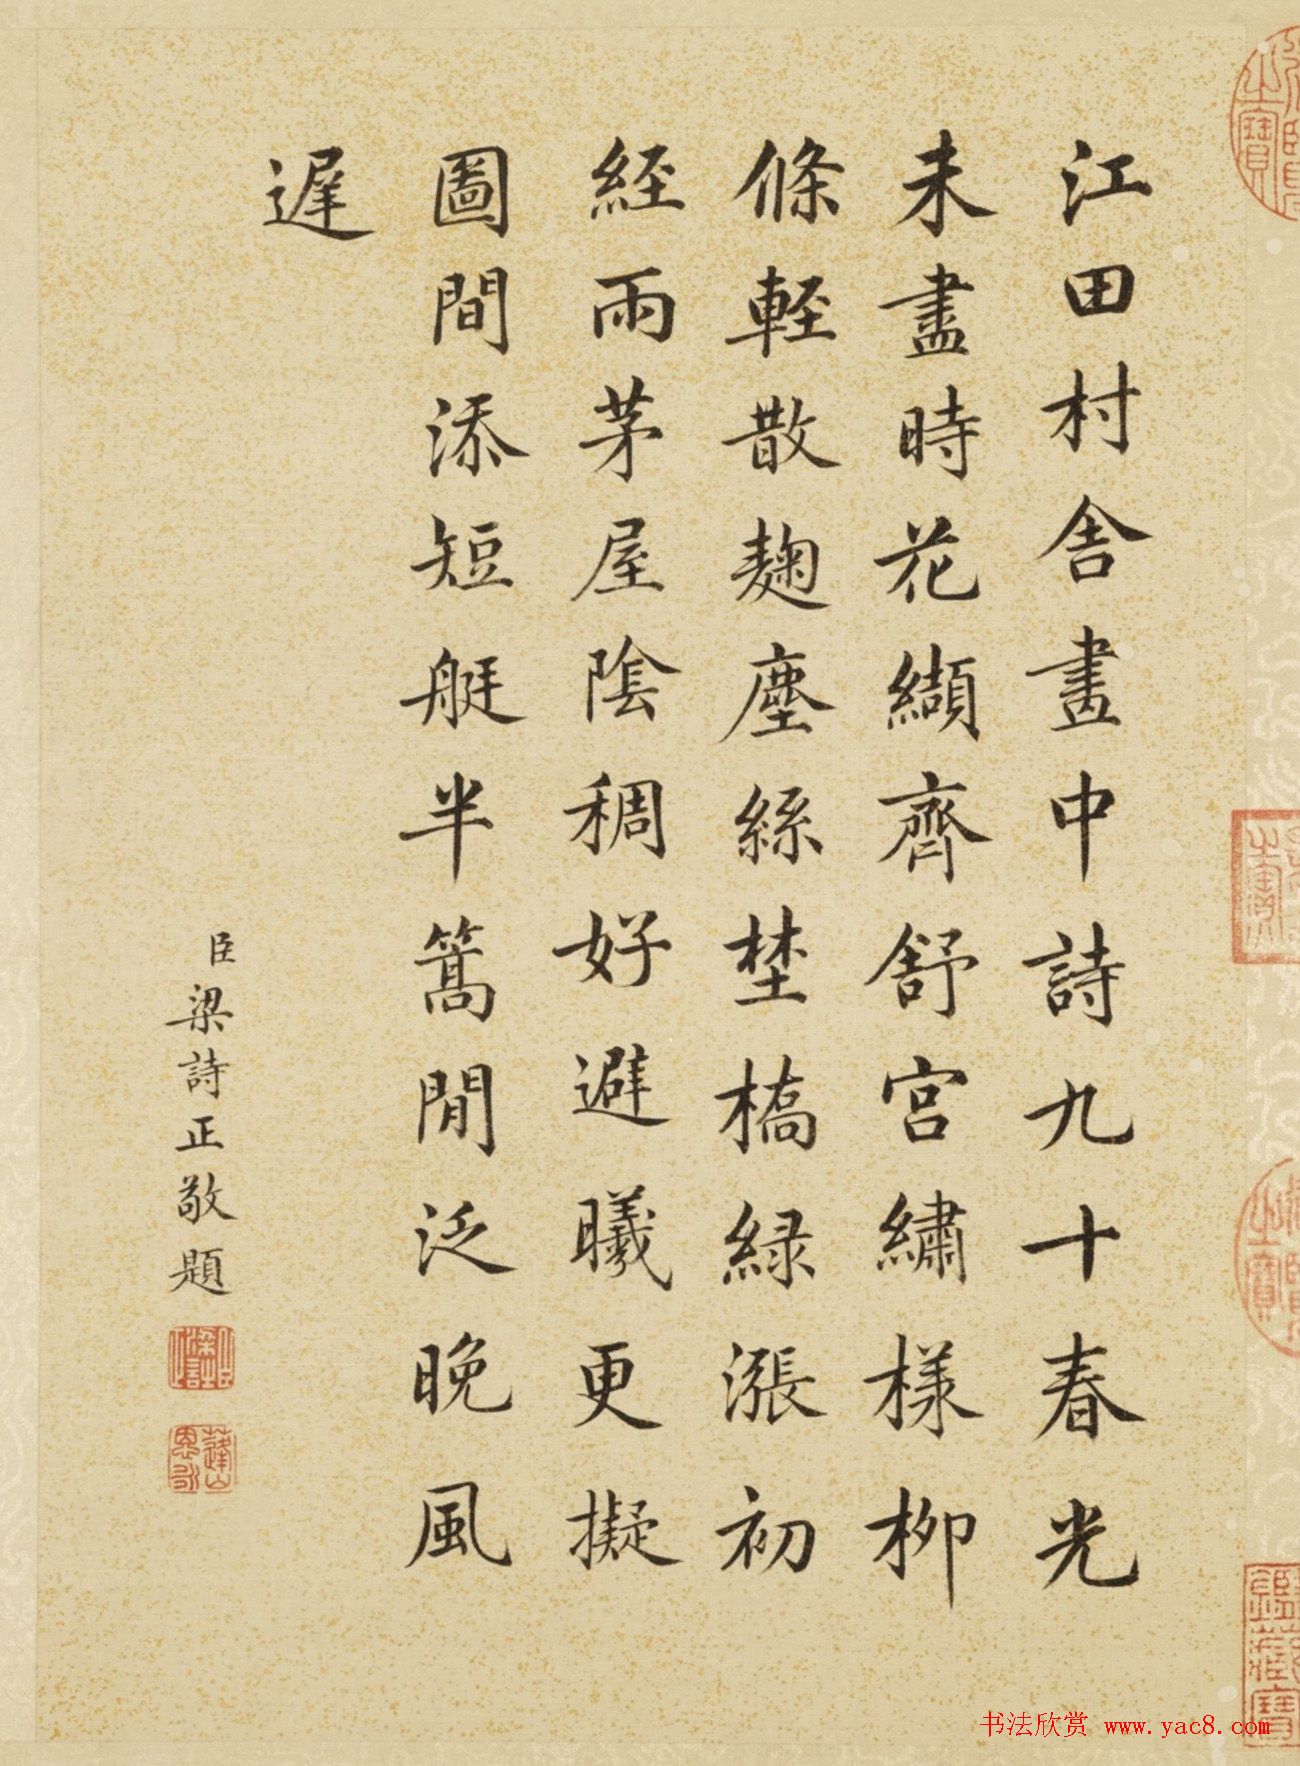 江田村舍畫中詩九十春光
未盡時花纈齊舒宮繡樣柳
條輕散麴塵絲埜橋緑漲初
經雨茅屋陰稠好避曦更擬
圖間添短艇半篙閒泛晚風
遲
臣梁詩正敬題
书法欣赏 www.yac8.com